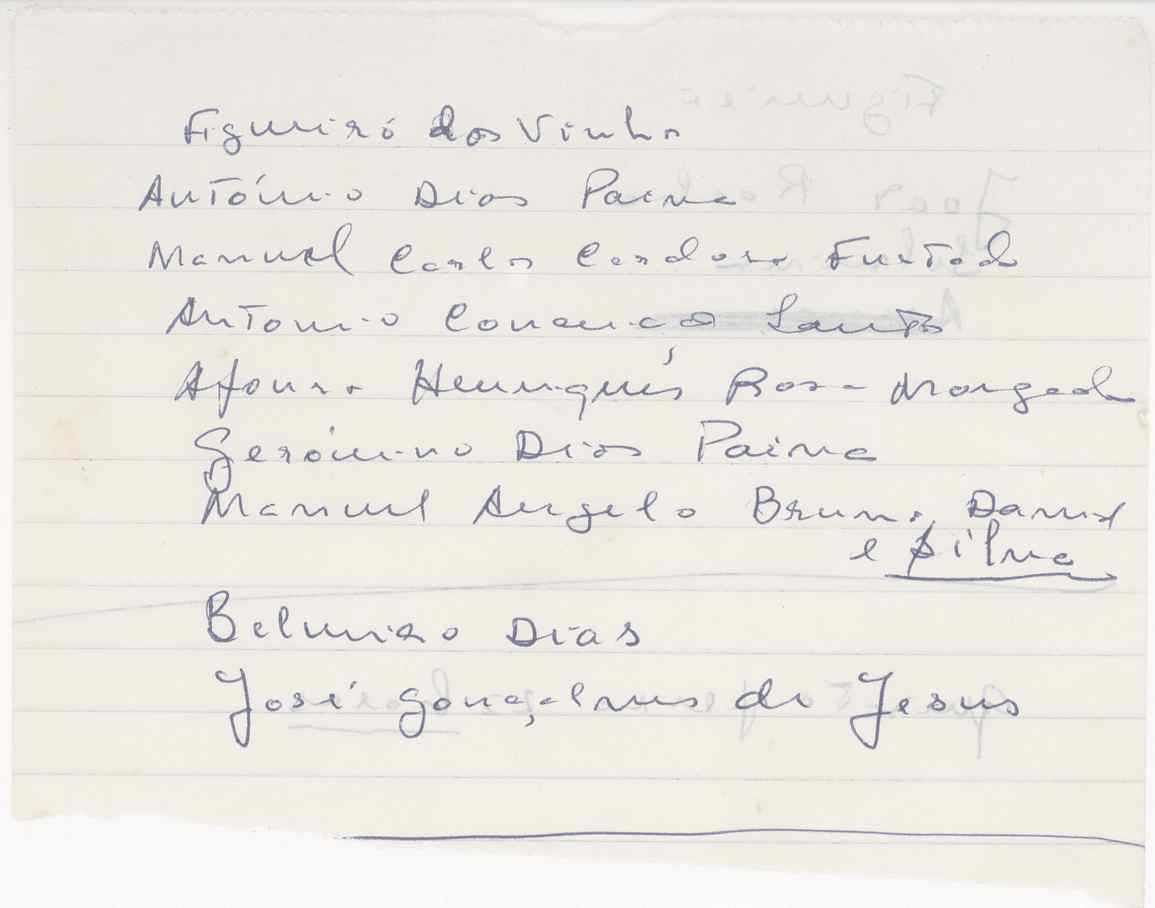 Figueiró dos Vinhos
António Dias Paiva
Manuel Carlos Cardoso Furtado
Antonio Conceição Santos
Afonso Henriques Rosa Morgado
Gerónimo Dias Paiva
Manuel Angelo Bruno David
e Silva
Belmiro Dias
José Gonçalves de Jesus